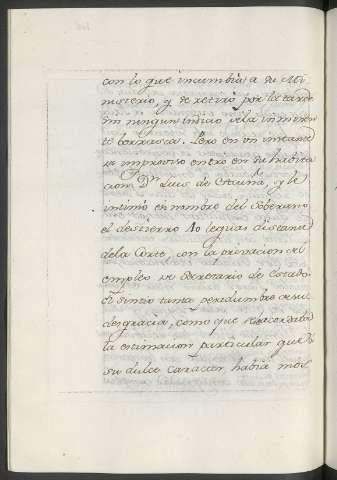 con lo que incumbia a su Mi-
nisterio, y se retiró por la tarde
sin ningun indicio de la inminen
te borrasca. Pero en un instante
de improviso entró en su habita
cion Dn Luis de y le
intimó en nombre del Soberano
el destierro 40 leguas distante
de la Corte, con la privacion del
empleo de Secretario de Estado.
El sintio tanta pesadumbre de su
desgracia, como que recordaba
la estimacion particular que
su dulce caracter había